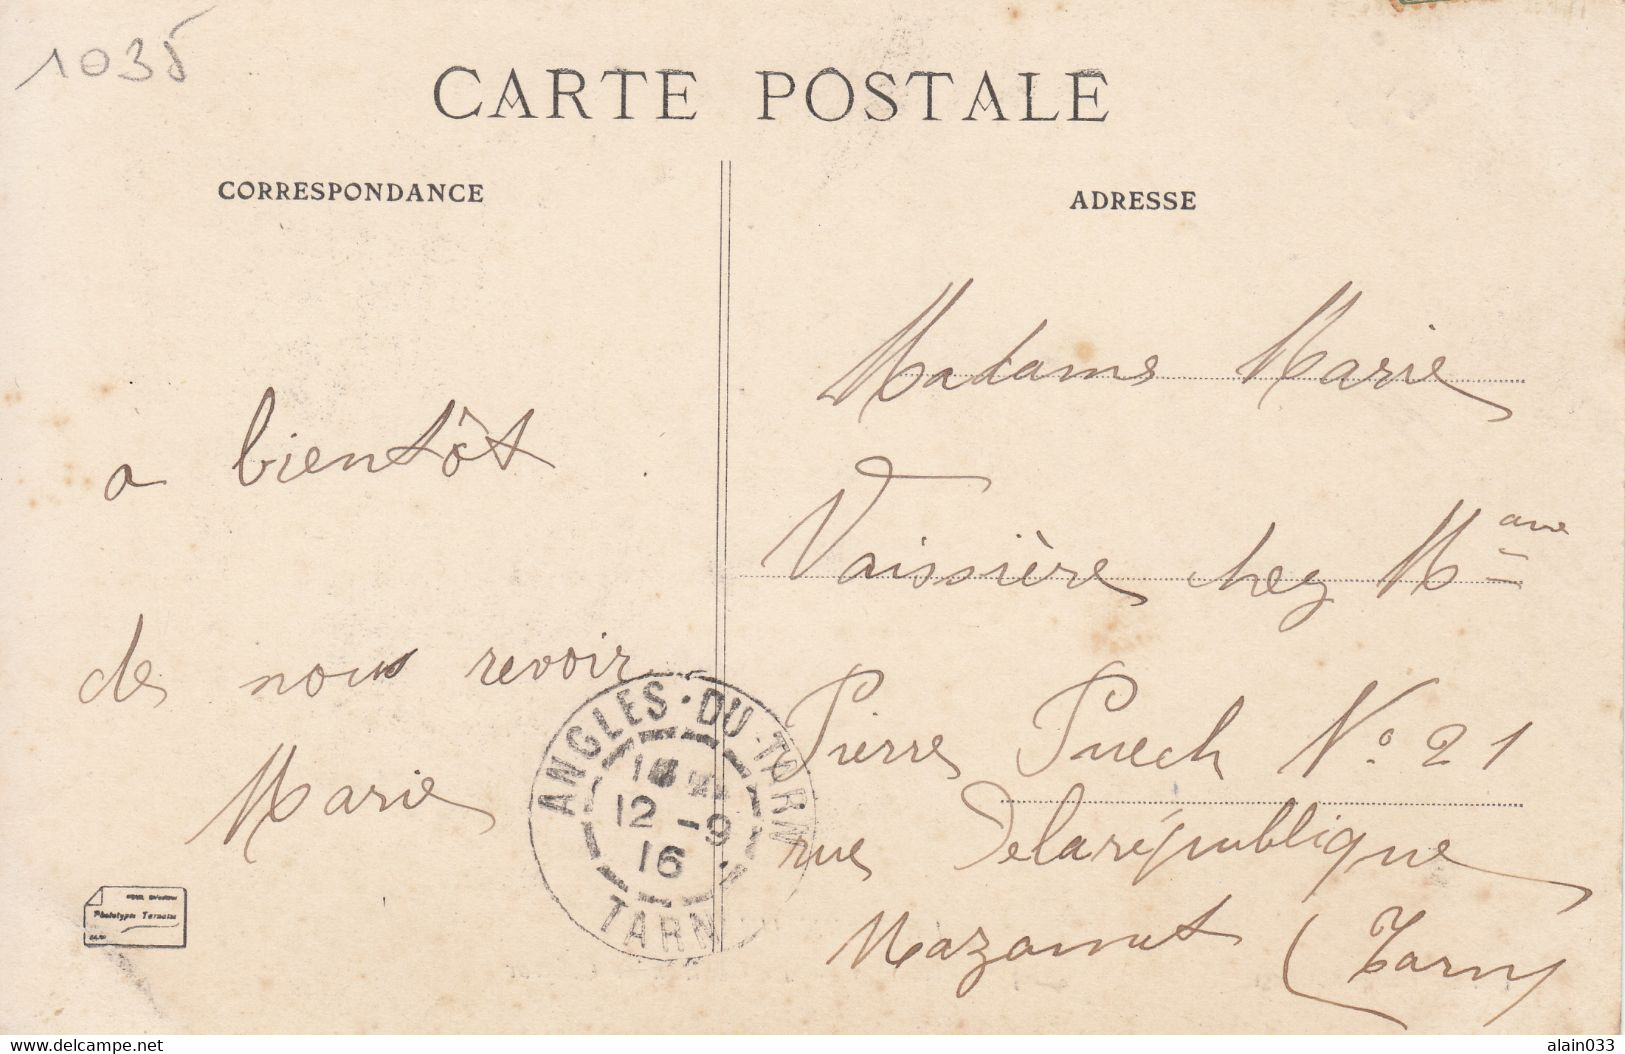 1035
CARTE POSTALE
CORRESPONDANCE
ADRESSE
a bientôt
de nous revoir
Marie
Madame Marie
Vaissière chez Mme
Pierre Puech No 21
rue Delarépublique
Mazamet (Tarn)
ANGLES-DU-TARN
12 -9
16
TARN
Phototypie Tarnaise
www.delcampe.net
alain033